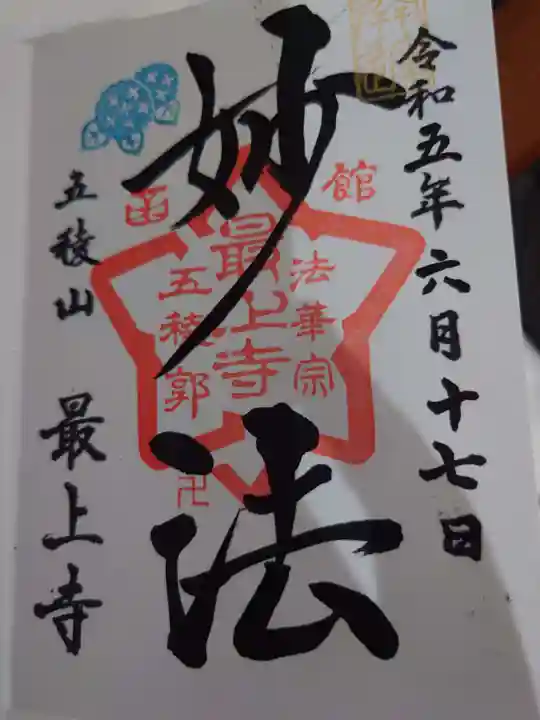 令和五年六月十七日
妙法
函館
法華宗
最上寺
五稜郭
卍
五稜山 最上寺